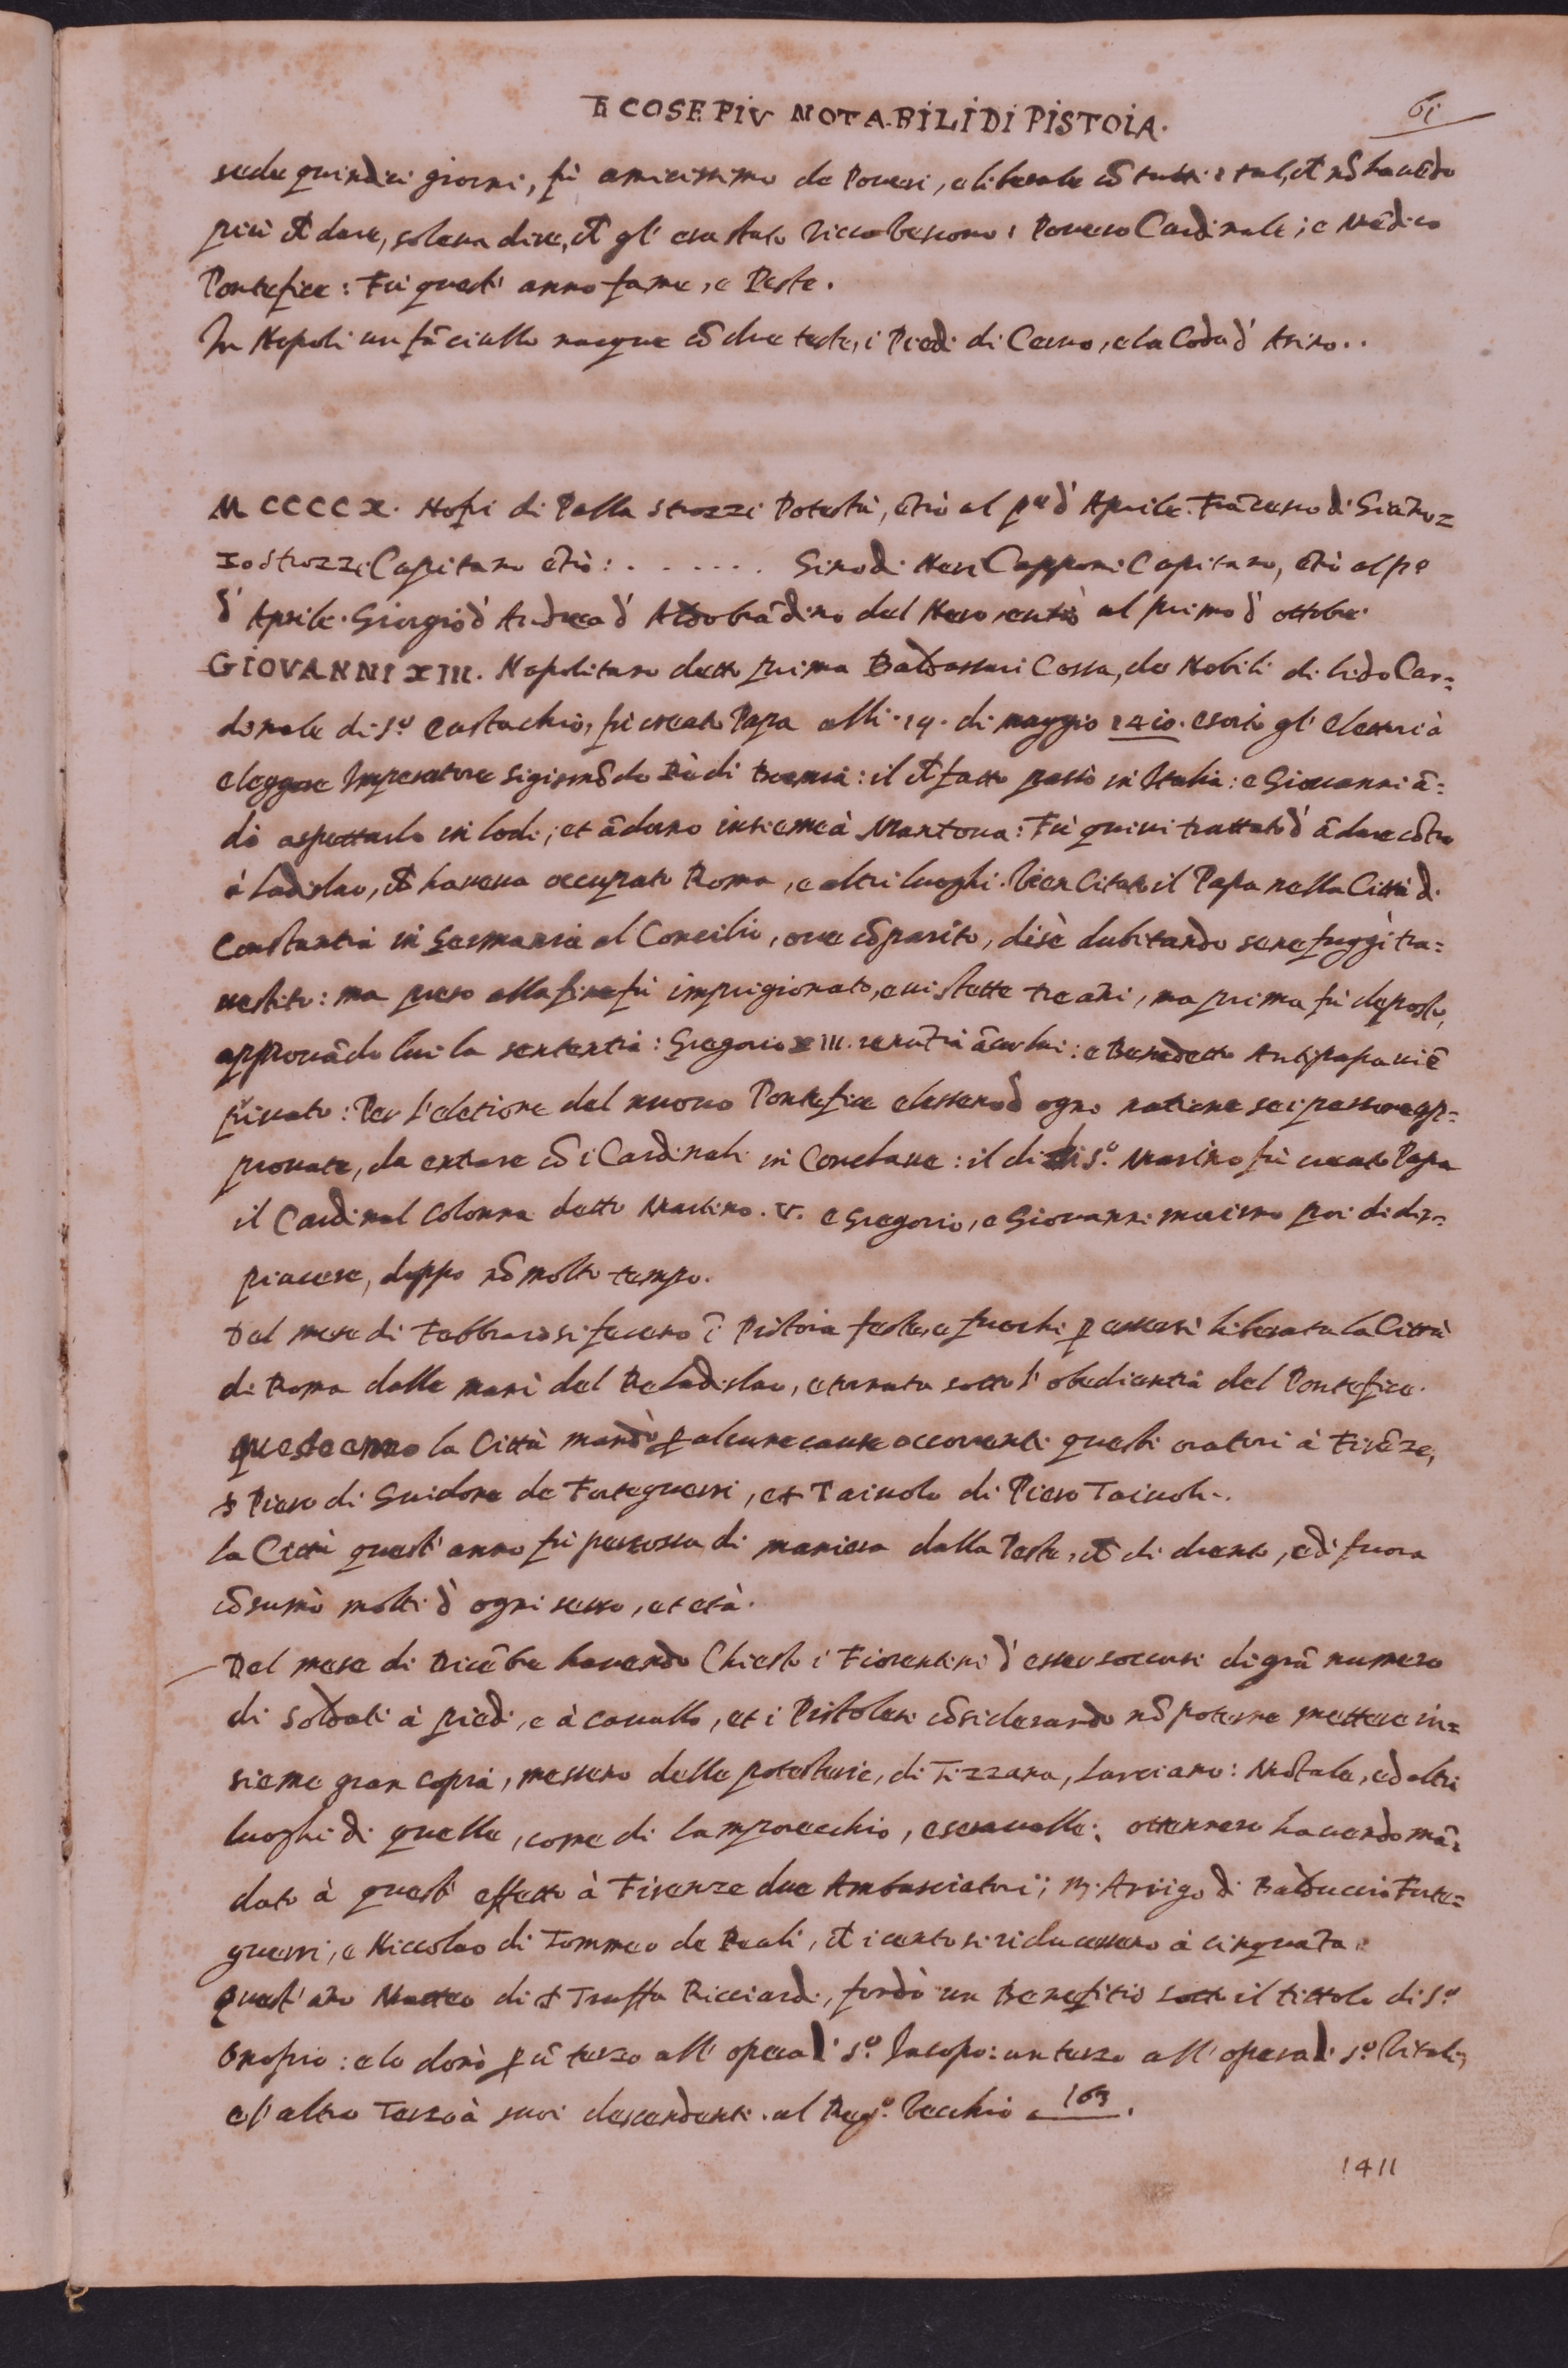 LE COSE PIV NOTABILI DI PISTOIA. 61
sede quindici giorni, fù amicissimo de Poveri, e liberale cō tutti: e tal, ch̄ nō havēdo
più ch̄ dare, soleva dire, ch̄ gl' era stato ricco Vescovo: Povero Cardinale; e Mēdico
Pontefice: Fù quest' anno fame, e Peste.
In Napoli un fāciullo nacque cō due teste, i Piedi di Cervo, e la Coda d' Asino..
MCCCCX. Nofri di Palla Strozzi Potestà, ētrò al p.º d' Aprile. Frācesco di Giāno=
zo Strozzi Capitano ētrò: . . . . . . Gino di Neri Capponi Capitano, ētrò al p.º
d' Aprile. Giorgio d' Andrea d' Aldobrādino del Nero entrò al primo d' ottobre.
GIOVANNI XIII. Napolitano detto prima Baldassari Cossa, de Nobili di lido Car=
dinale di S.º Eustachio, fù creato Papa alli .19. di maggio 1410. esortò gl' elettori à
eleggere Imperatore Sigismōdo Rè di Boemia: il ch̄ fatto passò in Italia: e Giovanni ā=
dò aspettarlo in Lodi; et ādorno insieme à Mantova: Fù quivi trattato d' ādare cōtro
à Ladislao, ch̄ haveva occupato Roma, e altri luoghi. Vien Citato il Papa nella Città di
Constantia in Germania al Concilio, ove cōparito, di sè dubitando se ne fuggì tra=
vestito: ma preso alla fine fù imprigionato, e vi stette tre āni, ma prima fù deposto,
approvādo lui la sententia: Gregorio XIII. renūtia ācor lui: e Benedetto Antipapa viē
privato: Per l' eletione del nuovo Pontefice elessero d' ogni natione sei persone ap=
provate, da entrare cō i Cardinali in Conclave: il dì di S.º Martino fù creato Papa
il Cardinal Colonna detto Martino .V. e Gregorio, e Giovanni morirno poi di dis=
piacere, doppo nō molto tempo.
Del mese di Febbraro si fecero ī Pistoia feste, e fuochi p̄ essersi liberata la Città
di Roma dalle mani del Re Ladislao, e tornata sotto l' obedientia del Pontefice.
Quest' anno la Città mandò p̄ alcune cause occorrenti questi oratori à Firēze,
Piero di Guidone de Forteguerri, et Taivolo di Piero Taivoli..
La Città quest' anno fù percossa di maniera dalla Peste, ch̄ di drento, e di fuora
cōsumò molti d' ogni sesso, et età.
Del mese di Dicēbre havendo Chiesto i Fiorentini d' esser soccorsi di grā numero
di soldati à piedi, e à cavallo, et i Pistolesi cōsiderando nō poterne mettere in=
sieme gran copia, messero delle potesterie, di Tizzana, Larciano: Mōtale, ed altri
luoghi di quelle, come di Lamporecchio, e seravalle: ottennero havendo mā=
dato à quest' effetto à Firenze due Ambasciatori; M. Arrigo di Balduccio Forte=
guerri, e Niccolao di Tommeo de Reali, ch̄ i cento si riducessero à cinquāta.
Quest' āno Matteo di Truffa Ricciardi, fondò un Benefitio sotto il tittolo di S.º
Onofrio: e lo donò p̄ ū terzo all' opera di S.º Jacopo: un terzo all' opera di S.º Vitale,
e l' altro Terzo à suoi descendenti. al Reg.º Vecchio a 163.
1411